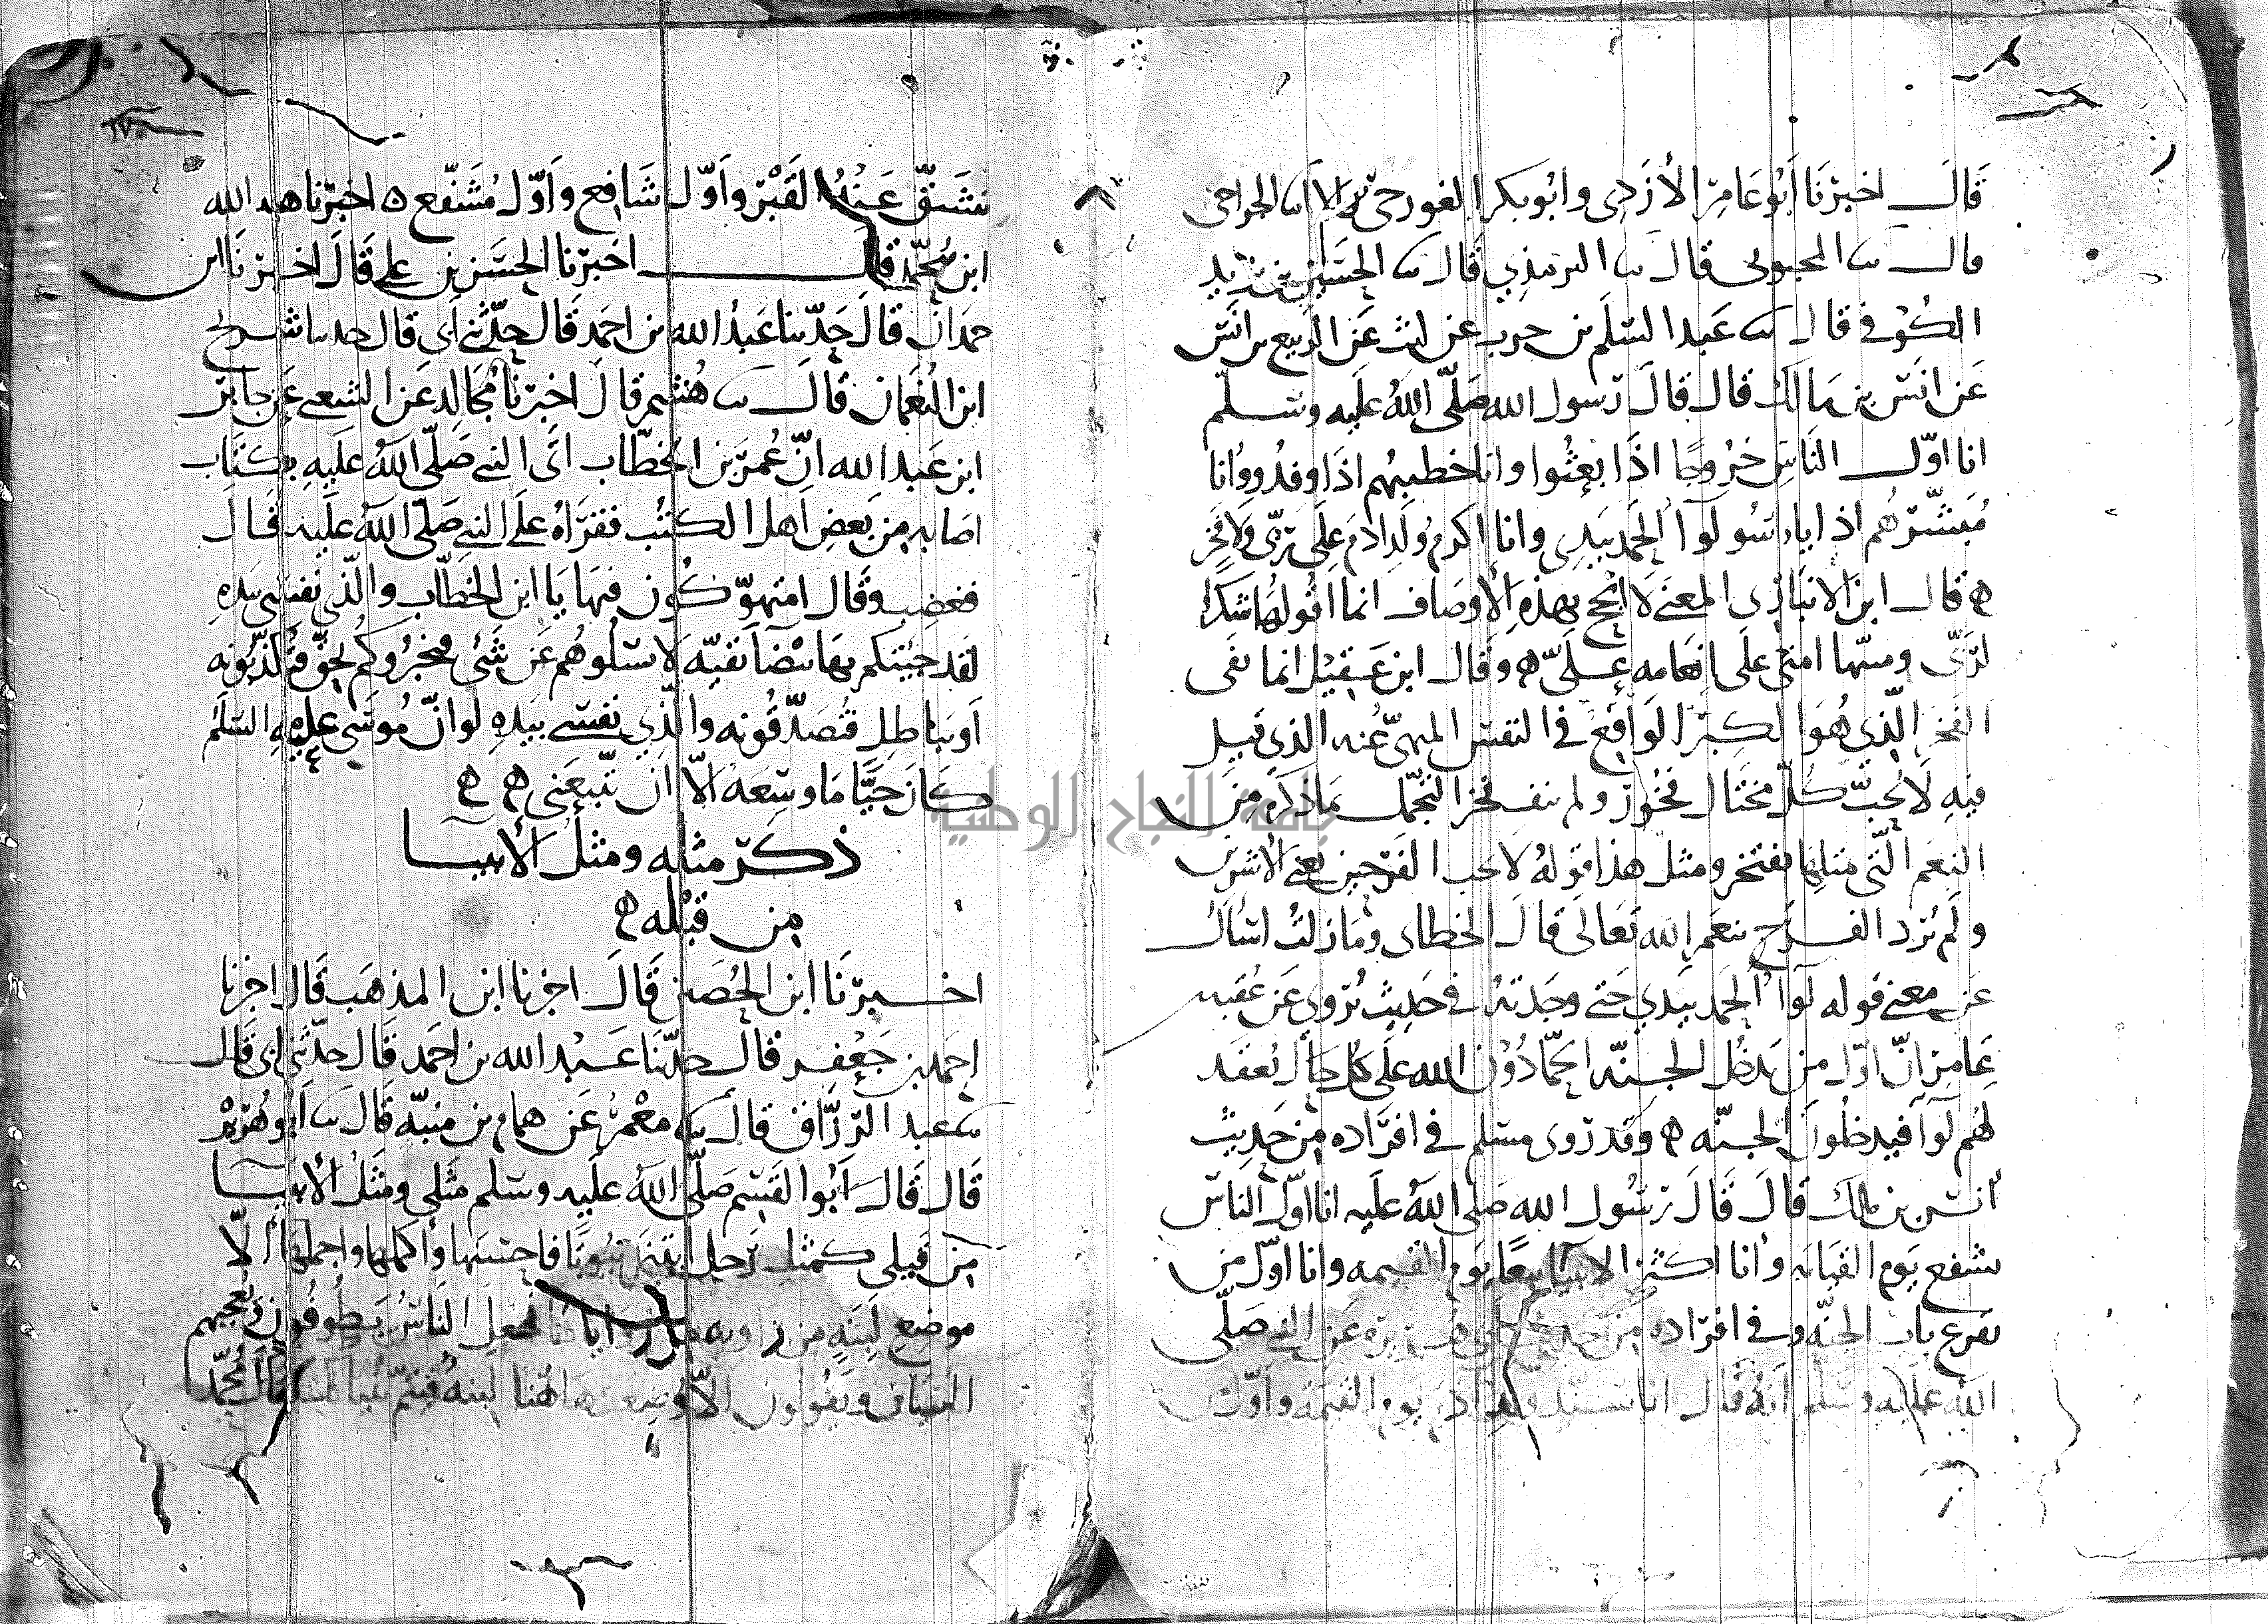 قال اخبرنا ابو عامر الأزدي وابو بكر الغورجي قالا الجراحي
قال المحبوبي قال الترمذي قال الحسين بن يزيد
الكوفي قال عبد السلم بن حرب عن ليث عن الربيع بن انس
عن انس بن مالك قال قال رسول الله صلى الله عليه وسلم
انا اول الناس خروجا اذا بعثوا وانا خطيبهم اذا وفدوا وانا
مبشرهم اذا لوآ الحمد بيدي وانا اكرم ولد ادم على ربي ولا فخر
ه قال ابن الانباري المعنى لا ابجح بهذه الأوصاف انما اقولها شكرا
لربي ومنبها امتي على انعامه علي ه وقال ابن عقيل انما نفى
الفخر الذي هو الكبر الواقع في النفس المنهي عنه الذي قيل
فيه لا يحب كل مختال فخور ولم ينف فخر التجمل بما ذكره من
النعم التي بمثلها يفتخر ومثل هذا قوله لا يحب الفرحين يعني الاشرين
ولم يرد الفرح بنعم الله تعالى قال الخطابي وما زلت اسأل
عن معنى قوله لوآ الحمد بيدي حتى وجدته في حديث يروى عن عقبه
عامر ان اول من يدخل الجنه الحمادون الله على كل حال يعقد
لهم لوآ فيدخلون الجنه ه وقد روى مسلم في افراده من حديث
أنس بن مالك قال قال رسول الله صلى الله عليه انا اول الناس
يشفع يوم القيامه وانا اكثر الانبيا تبعا يوم القيمه وانا اول من
يقرع باب الجنه وفي افراده من حديث ابي هريره عن النبي صلى
الله عليه وسلم انه قال انا سيد ولد ادم يوم القيمه واول من
ينشق عنه القبر واول شافع واول مشفع ه اخبرنا هبه الله
ابن محمد قال اخبرنا الحسن بن علي قال اخبرنا ابن
حمدان قال حدثنا عبد الله بن احمد قال حدثني ابي قال حدثنا شريح
ابن النعمان قال هشيم قال اخبرنا مجالد عن الشعبي عن جابر
ابن عبد الله ان عمر بن الخطاب اتى النبي صلى الله عليه بكتاب
اصابه من بعض اهل الكتب فقراه على النبي صلى الله عليه قال
فغضب وقال امتهوكون فيها يا ابن الخطاب والذي نفسي بيده
لقد جيتكم بها بيضآ نقيه لا تسلوهم عن شئ فيخبروكم بحق فتكذبونه
او بباطل فتصدقونه والذي نفسي بيده لو ان موسى عليه السلم
كان حيا ما وسعه الا ان يتبعني ه ه
ذكر مثله ومثل الأنبيآ
من قبله ه
اخبرنا ابن الحصين قال اخبرنا ابن المذهب قال اخبرنا
احمد بن جعفر قال حدثنا عبد الله بن احمد قال حدثني ابي قال
عبد الرزاق قال معمر عن همام بن منبه قال ابو هريره
قال قال ابو القسم صلى الله عليه وسلم مثلي ومثل الأنبيآ
من قبلي كمثل رجل ابتنى بيوتا فاحسنها واكملها واجملها الا
موضع لبنه من زاويه من زواياها فجعل الناس يطوفون ويعجبهم
البنيان ويقولون الا وضعت هاهنا لبنه فيتم بنيانك قال محمد
جامعة النجاح الوطنية